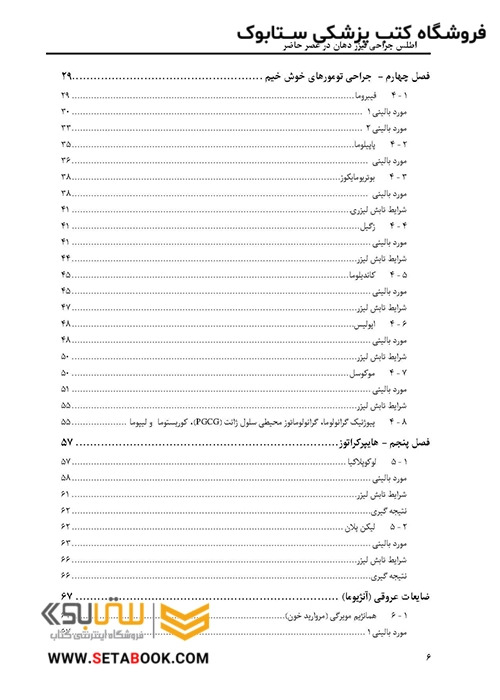 فروشگاه کتب پزشکی ستابوک
اطلس جراحی لیزر دهان در عصر حاضر
فصل چهارم - جراحی تومورهای خوش خیم ........ ۲۹
۴ - ۱ فیبروما ........ ۲۹
مورد بالینی ۱ ........ ۳۰
مورد بالینی ۲ ........ ۳۳
۴ - ۲ پاپیلوما ........ ۳۵
مورد بالینی ........ ۳۶
۴ - ۳ بوتریومایکوز ........ ۳۸
مورد بالینی ........ ۳۸
شرایط تابش لیزری ........ ۴۱
۴ - ۴ زگیل ........ ۴۱
مورد بالینی ........ ۴۱
شرایط تابش لیزر ........ ۴۴
۴ - ۵ کاندیلوما ........ ۴۵
مورد بالینی ........ ۴۵
شرایط تابش لیزر ........ ۴۷
۴ - ۶ اپولیس ........ ۴۸
مورد بالینی ........ ۴۸
شرایط تابش لیزر ........ ۵۰
۴ - ۷ موکوسل ........ ۵۰
مورد بالینی ........ ۵۱
شرایط تابش لیزر ........ ۵۵
۴ - ۸ پیوژنیک گرانولوما، گرانولوماتوز محیطی سلول ژانت (PGCG)، کوریستوما و لیپوما ........ ۵۵
فصل پنجم - هایپرکراتوز ........ ۵۷
۵ - ۱ لوکوپلاکیا ........ ۵۷
مورد بالینی ........ ۵۸
شرایط تابش لیزر ........ ۶۱
نتیجه گیری ........ ۶۲
۵ - ۲ لیکن پلان ........ ۶۲
مورد بالینی ........ ۶۳
شرایط تابش لیزر ........ ۶۶
نتیجه گیری ........ ۶۶
ضایعات عروقی (آنژیوما) ........ ۶۷
۶ - ۱ همانژیم مویرگی (مروارید خون) ........
مورد بالینی ۱ ........
ستابوک
فروشگاه اینترنتی کتاب
WWW.SETABOOK.COM
۶